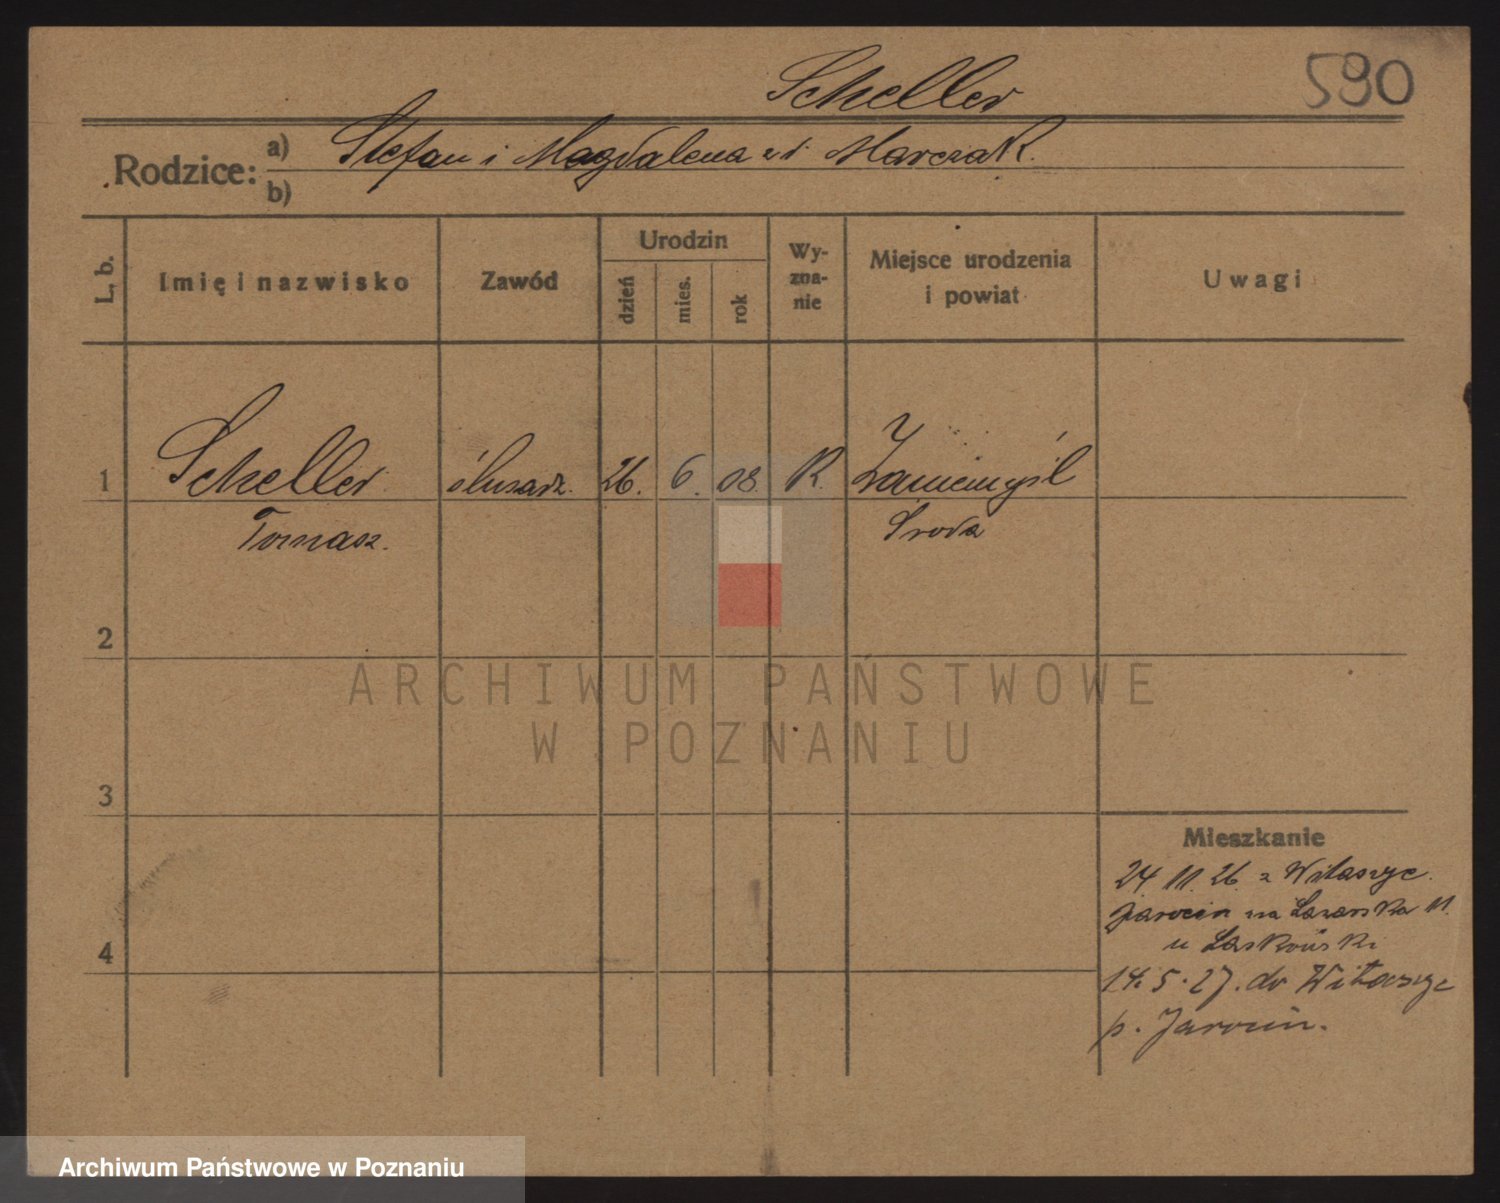 Scheller 590
Rodzice: a) Stefan i Magdalena z d. Marczak.
b)
L. b.
Imię i nazwisko
Zawód
Urodzin
dzień
mies.
rok
Wy-
zna-
nie
Miejsce urodzenia
i powiat
Uwagi
1 Scheller ślusarz. 26. 6. 08. R. Zaniemyśl
Tomasz. Środa
2
3
4
Mieszkanie
24 11. 26 z Witaszyc.
Jarocin na 11.
u
14. 5. 27. do Witaszyc
p. Jarocin.
ARCHIWUM PAŃSTWOWE
W POZNANIU
Archiwum Państwowe w Poznaniu